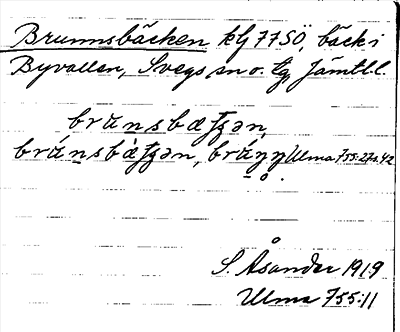 Brunnsbäcken kbj 77SÖ, bäck i
Byvallen, Svegs sn o. tg Jämtl.l.
brunsbæʃʒən,
brúnsbæ̀ʃʒən, brúŋŋ Ulma 755:27 s.42
S. Åsander 1919
Ulma 755:11